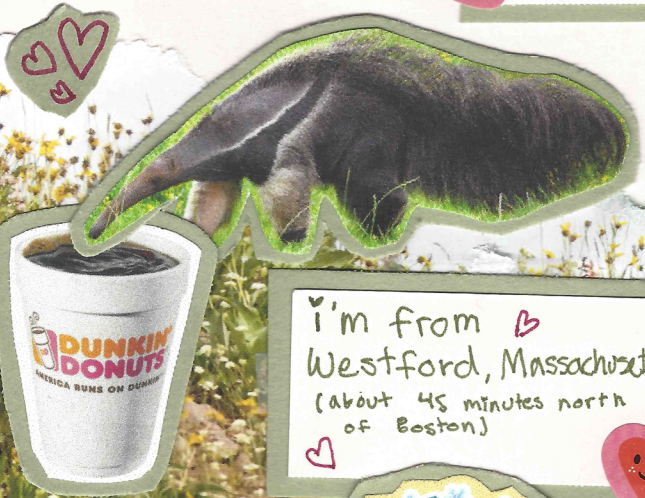 DUNKIN'
DONUTS
AMERICA RUNS ON DUNKIN'
i'm from
Westford, Massachuset
(about 45 minutes north
of Boston)